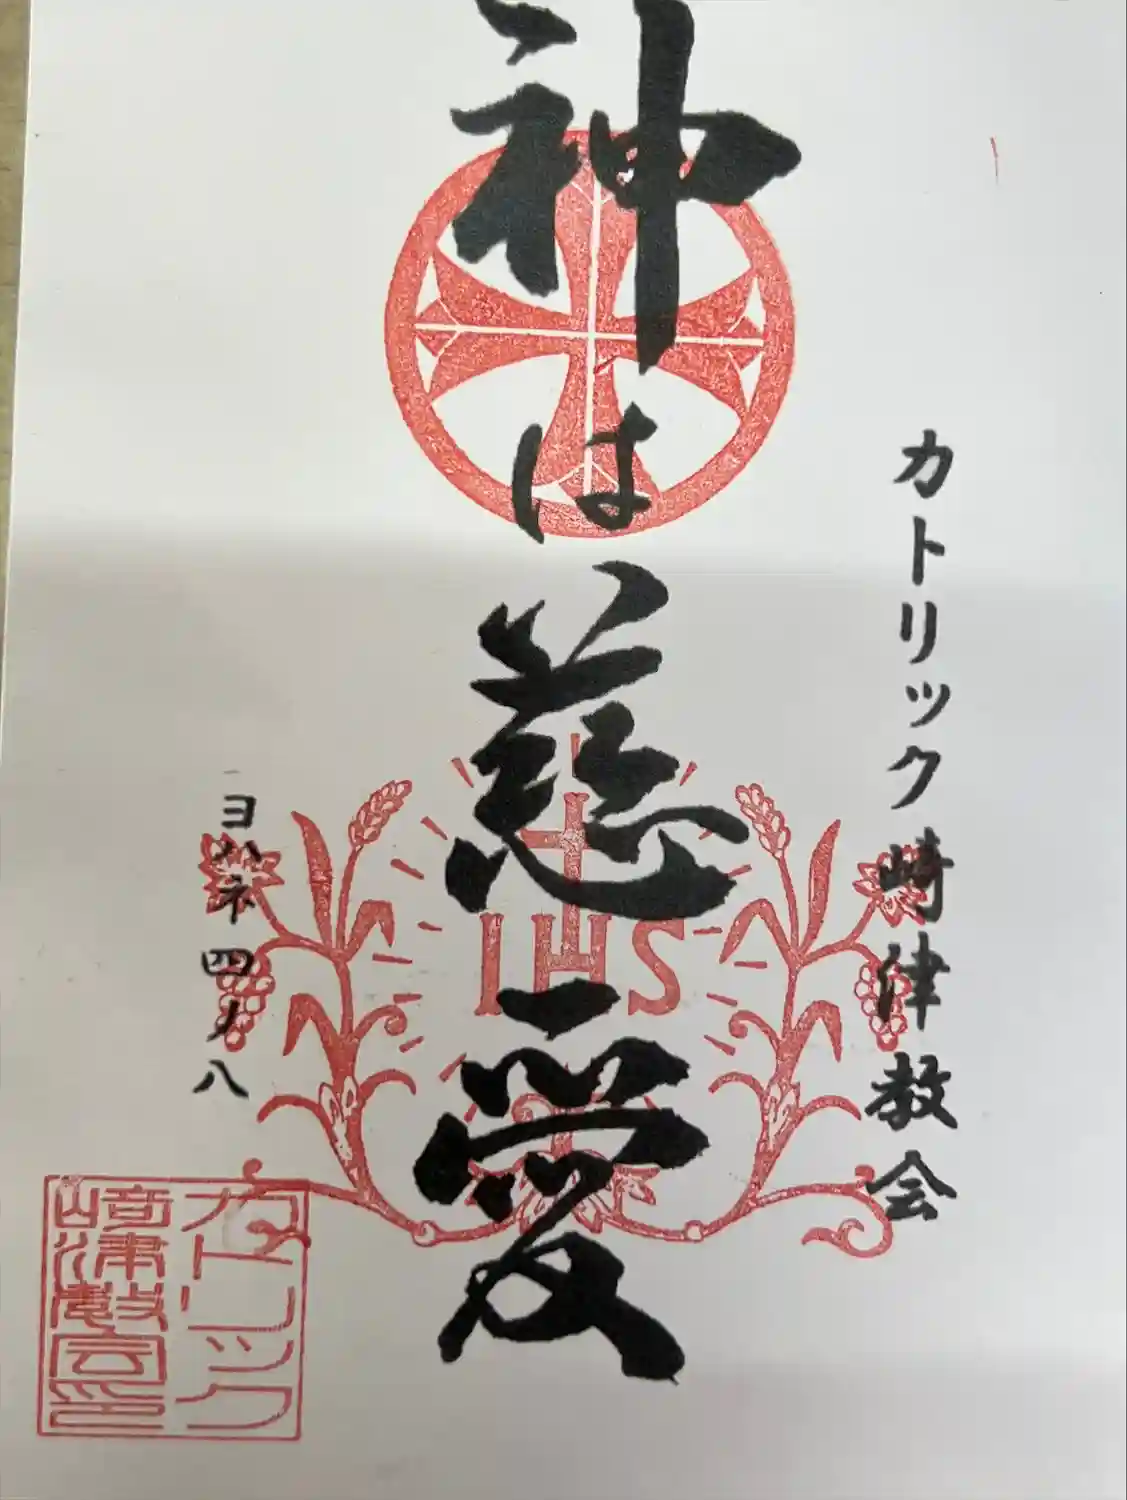 カトリック崎津教会
神は慈愛
IHS
ヨハネ四ノ八
カトリック
崎津教会印